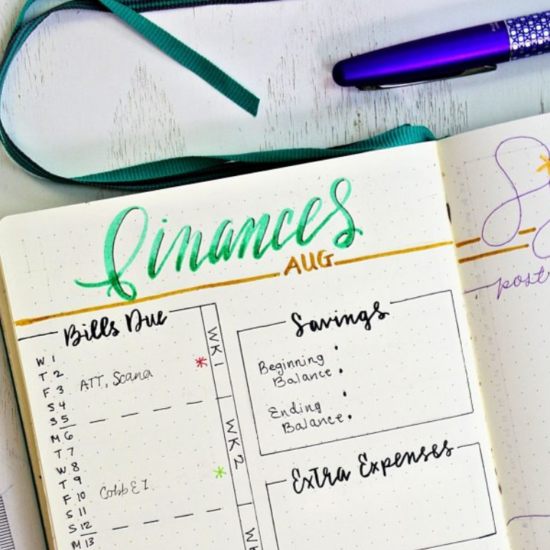 Finances
AUG
Bills Due
W 1
T 2
F 3 ATT, Scana
S 4
S 5
M 6
T 7
W 8
T 9
F 10 Cobb EZ
S 11
S 12
M 13
WK 1
WK 2
Savings
Beginning
Balance
Ending
Balance
Extra Expenses